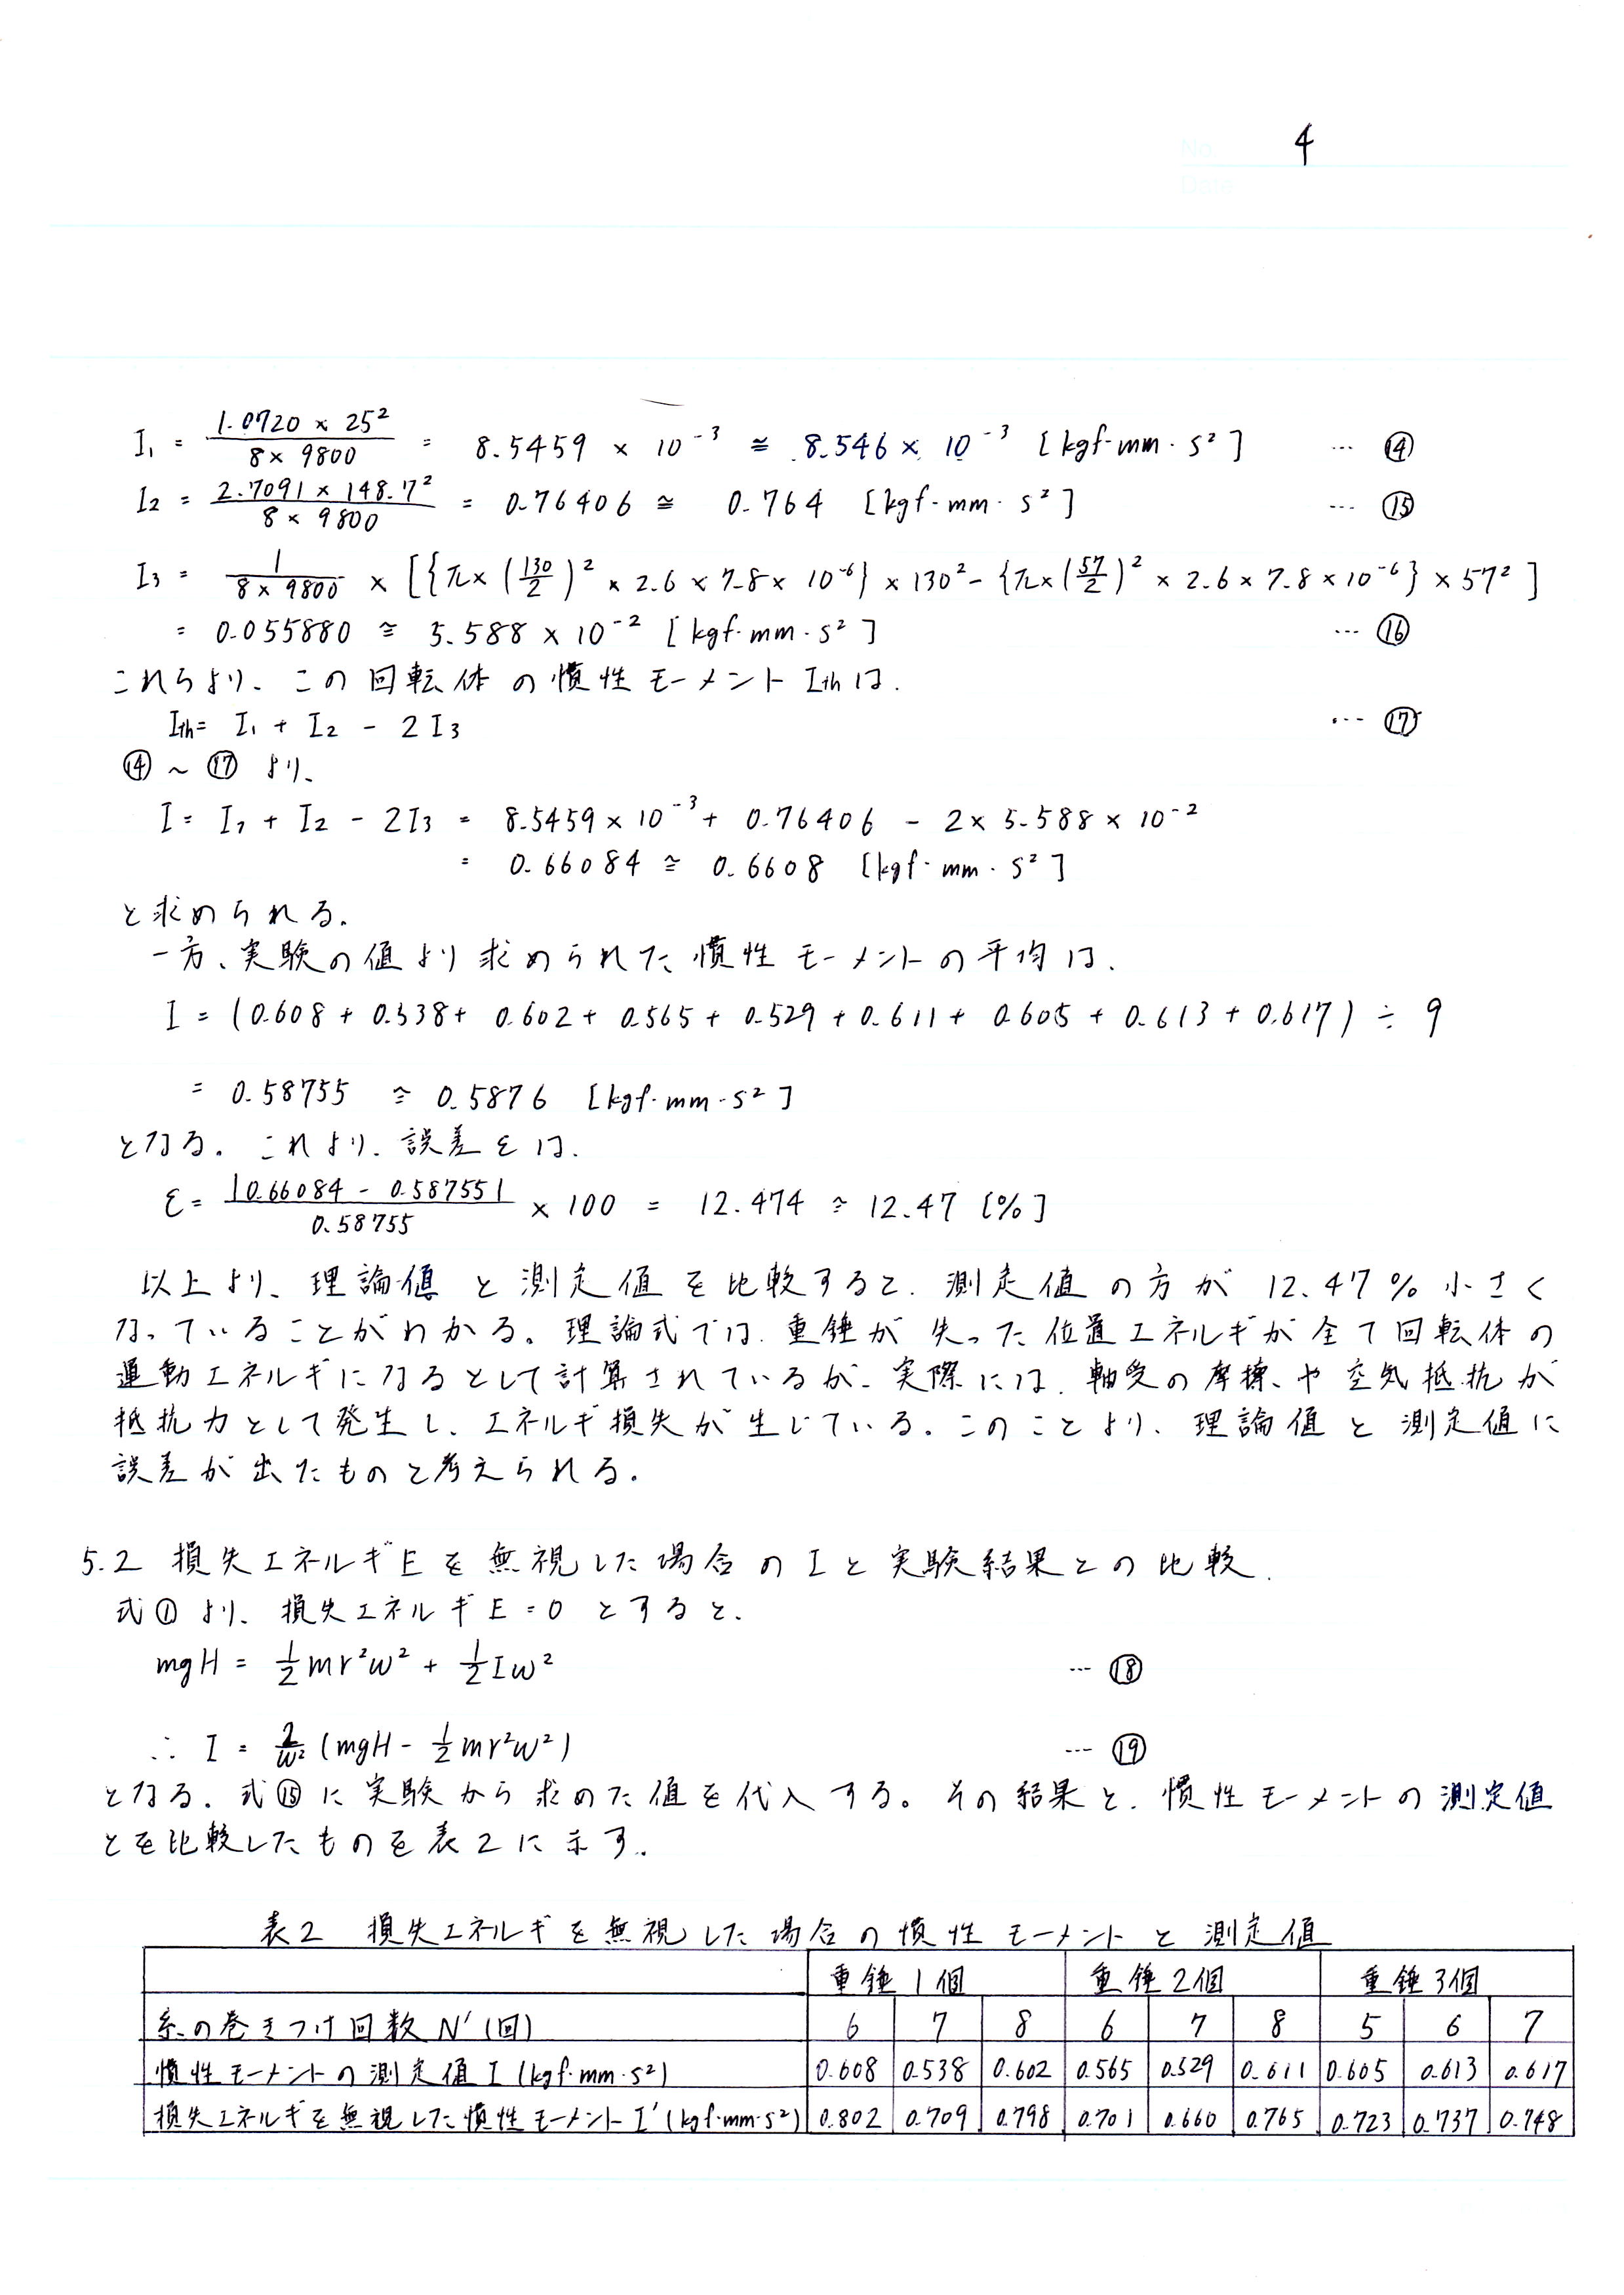 No. 4
Date
I₁ = 1.0720 × 25² / 8 × 9800 = 8.5459 × 10⁻³ ≅ 8.546 × 10⁻³ [kgf·mm·s²] … ⑭
I₂ = 2.7091 × 148.7² / 8 × 9800 = 0.76406 ≅ 0.764 [kgf·mm·s²] … ⑮
I₃ = 1 / 8 × 9800 × [{π × (130/2)² × 2.6 × 7.8 × 10⁻⁶} × 130² − {π × (57/2)² × 2.6 × 7.8 × 10⁻⁶} × 57²]
= 0.055880 ≅ 5.588 × 10⁻² [kgf·mm·s²] … ⑯
これらより、この回転体の慣性モーメントIthは、
Ith = I₁ + I₂ − 2I₃ … ⑰
⑭〜⑰より、
I = I₁ + I₂ − 2I₃ = 8.5459 × 10⁻³ + 0.76406 − 2 × 5.588 × 10⁻²
= 0.66084 ≅ 0.6608 [kgf·mm·s²]
と求められる。
一方、実験の値より求められた慣性モーメントの平均は、
I = (0.608 + 0.538 + 0.602 + 0.565 + 0.529 + 0.611 + 0.605 + 0.613 + 0.617) ÷ 9
= 0.58755 ≅ 0.5876 [kgf·mm·s²]
となる。これより、誤差εは、
ε = |0.66084 − 0.58755| / 0.58755 × 100 = 12.474 ≅ 12.47 [%]
以上より、理論値と測定値を比較すると、測定値の方が12.47%小さく
なっていることがわかる。理論式では、重錘が失った位置エネルギが全て回転体の
運動エネルギになるとして計算されているが、実際には、軸受の摩擦、や空気抵抗が
抵抗力として発生し、エネルギ損失が生じている。このことより、理論値と測定値に
誤差が出たものと考えられる。
5.2 損失エネルギEを無視した場合のIと実験結果との比較
式①より、損失エネルギE=0とすると、
mgH = 1/2 mr²ω² + 1/2 Iω² … ⑱
∴ I = 2/ω² (mgH − 1/2 mr²ω²) … ⑲
となる。式⑮に実験から求めた値を代入する。その結果と、慣性モーメントの測定値
とを比較したものを表2に示す。
表2 損失エネルギを無視した場合の慣性モーメントと測定値
重錘1個 重錘2個 重錘3個
糸の巻きつけ回数N'(回) 6 7 8 6 7 8 5 6 7
慣性モーメントの測定値I(kgf·mm·s²) 0.608 0.538 0.602 0.565 0.529 0.611 0.605 0.613 0.617
損失エネルギを無視した慣性モーメントI'(kgf·mm·s²) 0.802 0.709 0.798 0.701 0.660 0.765 0.723 0.737 0.748